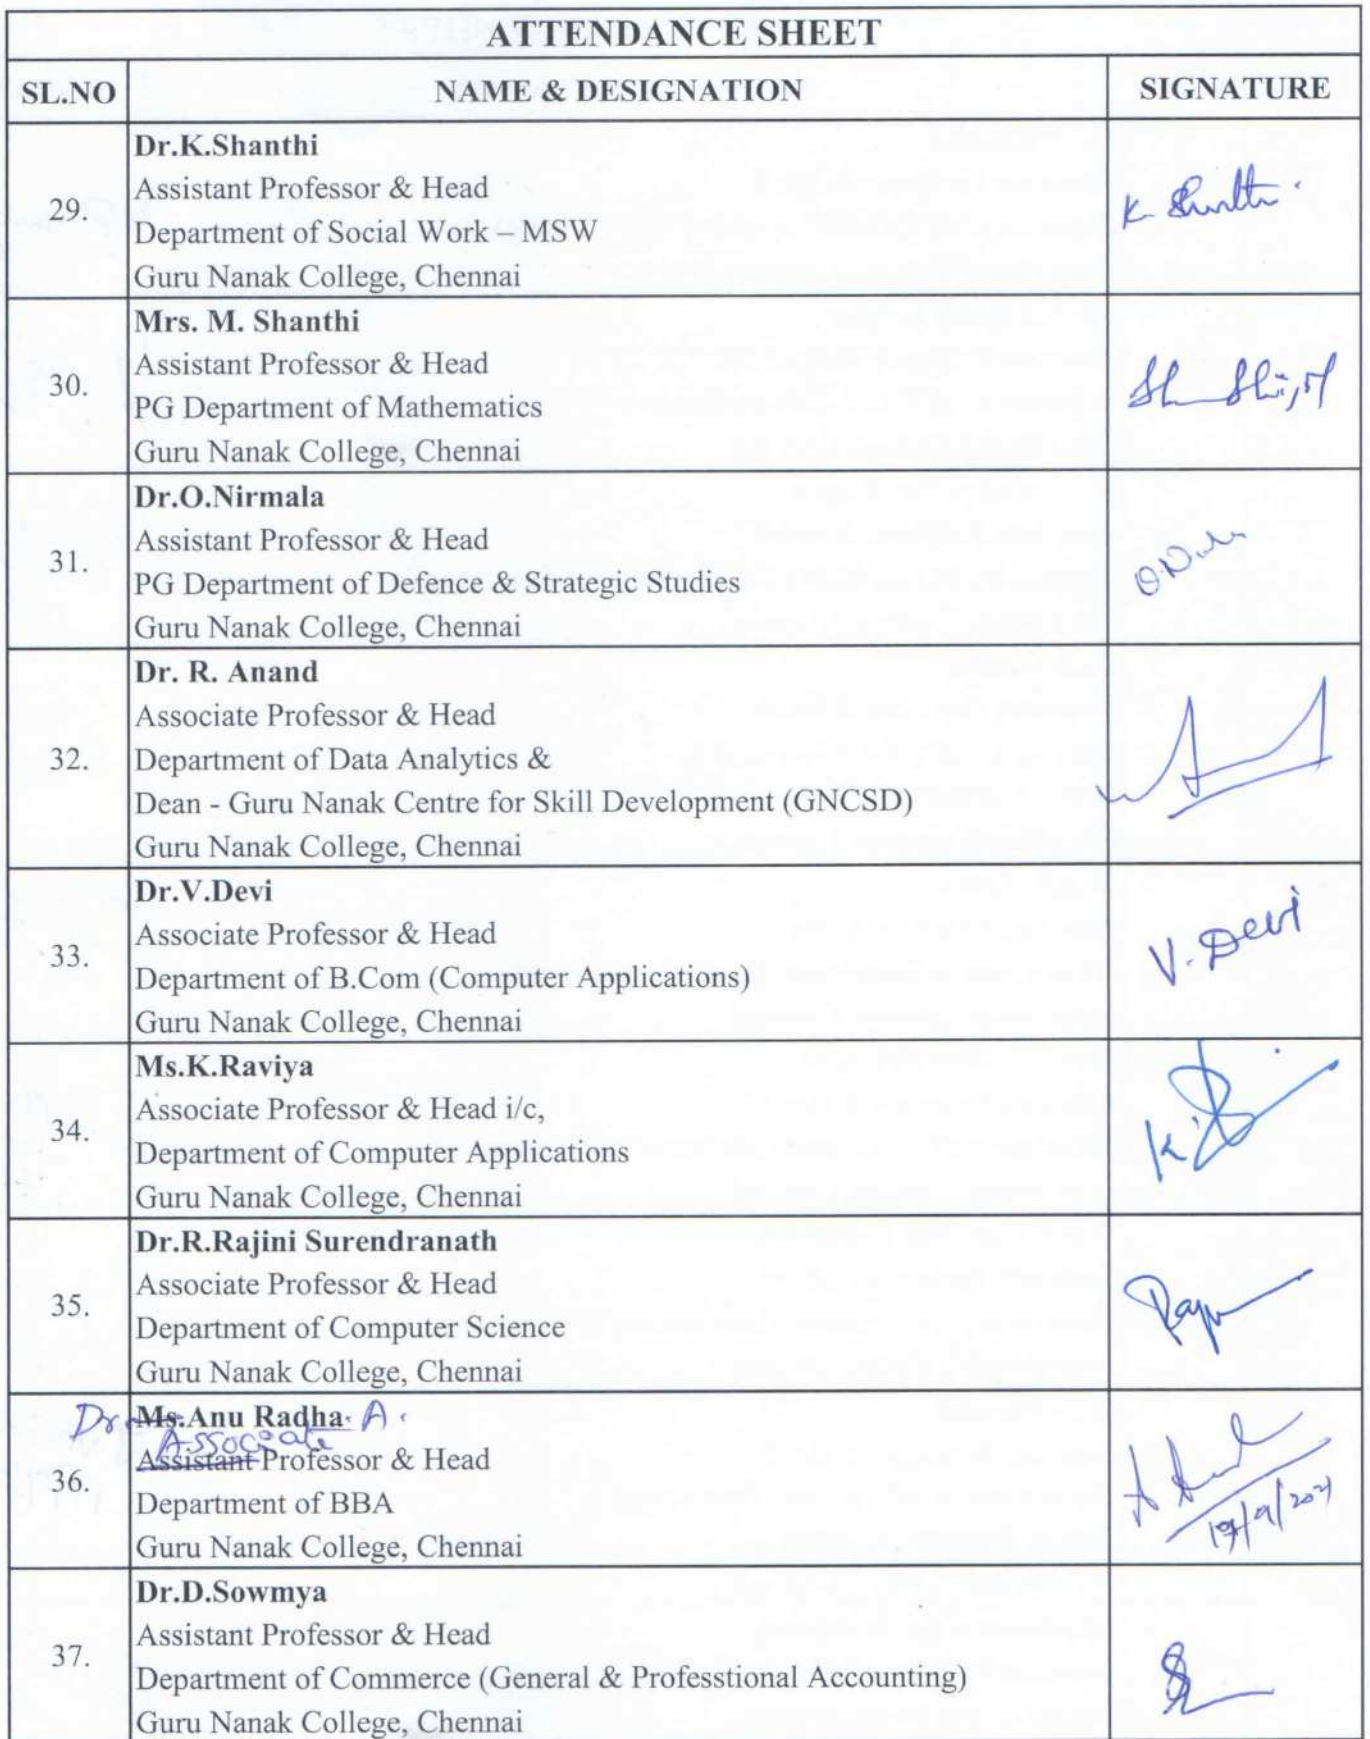 ATTENDANCE SHEET
SL.NO NAME & DESIGNATION SIGNATURE
29.
Dr.K.Shanthi
Assistant Professor & Head
Department of Social Work – MSW
Guru Nanak College, Chennai
K. Shanthi
30.
Mrs. M. Shanthi
Assistant Professor & Head
PG Department of Mathematics
Guru Nanak College, Chennai
31.
Dr.O.Nirmala
Assistant Professor & Head
PG Department of Defence & Strategic Studies
Guru Nanak College, Chennai
32.
Dr. R. Anand
Associate Professor & Head
Department of Data Analytics &
Dean - Guru Nanak Centre for Skill Development (GNCSD)
Guru Nanak College, Chennai
33.
Dr.V.Devi
Associate Professor & Head
Department of B.Com (Computer Applications)
Guru Nanak College, Chennai
V. Devi
34.
Ms.K.Raviya
Associate Professor & Head i/c,
Department of Computer Applications
Guru Nanak College, Chennai
35.
Dr.R.Rajini Surendranath
Associate Professor & Head
Department of Computer Science
Guru Nanak College, Chennai
36.
Dr. Ms.Anu Radha. A.
Associate
Assistant Professor & Head
Department of BBA
Guru Nanak College, Chennai
37.
Dr.D.Sowmya
Assistant Professor & Head
Department of Commerce (General & Professtional Accounting)
Guru Nanak College, Chennai